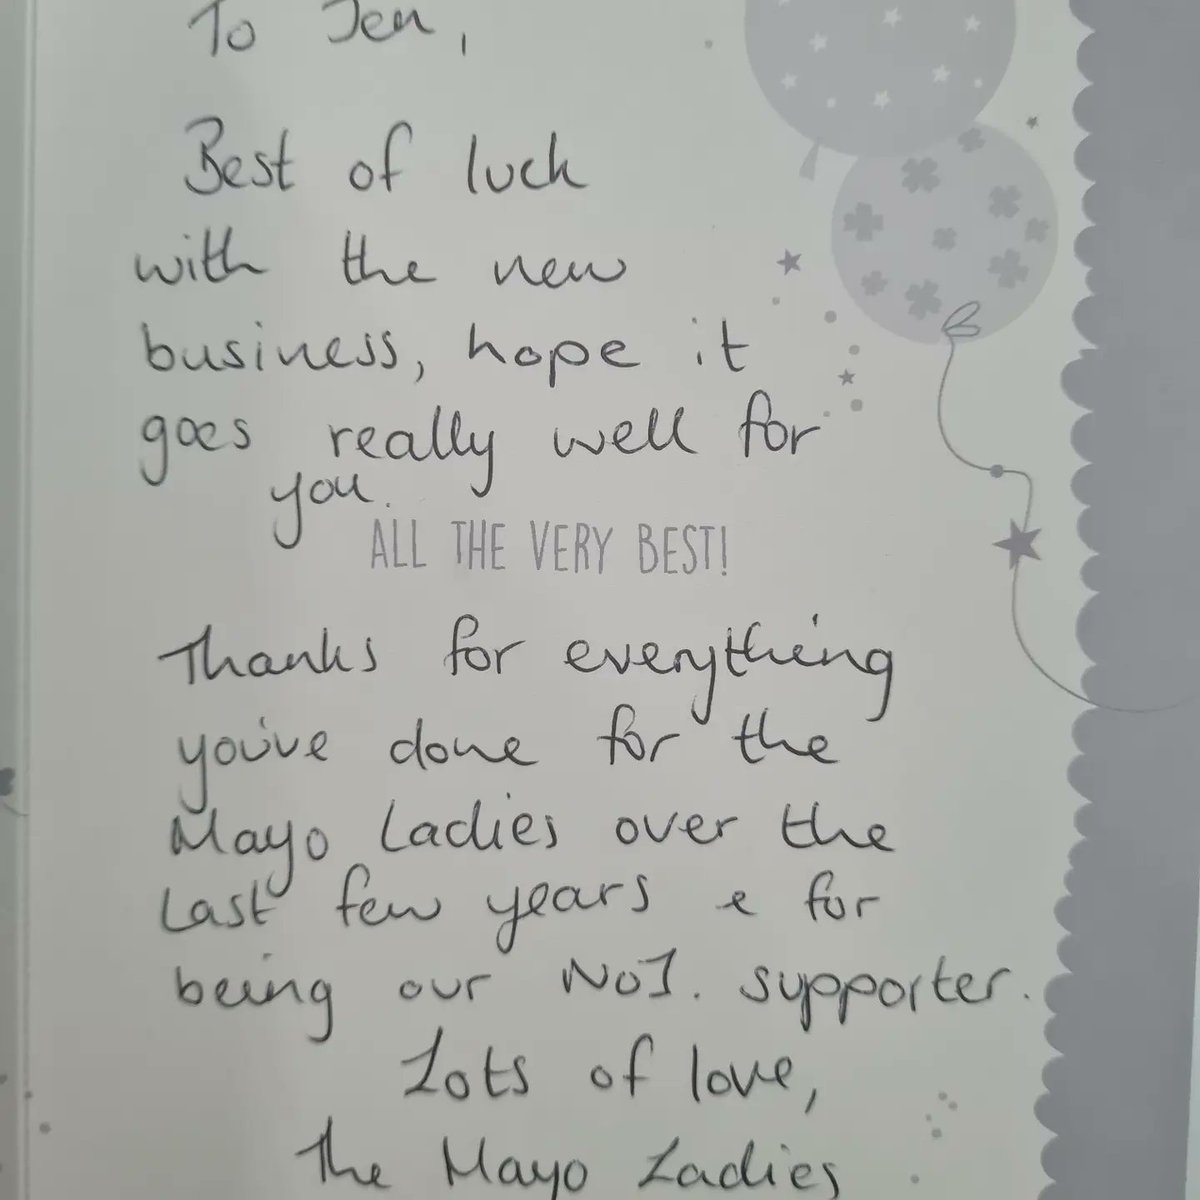 To Jen,
Best of luck
with the new
business, hope it
goes really well for
you.
ALL THE VERY BEST!
Thanks for everything
you've done for the
Mayo Ladies over the
last few years & for
being our No1. supporter.
Lots of love,
The Mayo Ladies